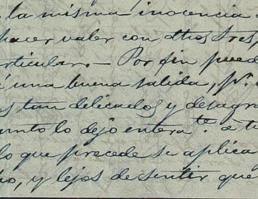 la misma inocencia
hacer valer con dthos tres
articular. — Por fin pued
é una buena salida, Pr.
s tan delicados y desagra
unto lo dejo entera.te a t
lo que precede se aplica
o, y lejos de sentir que